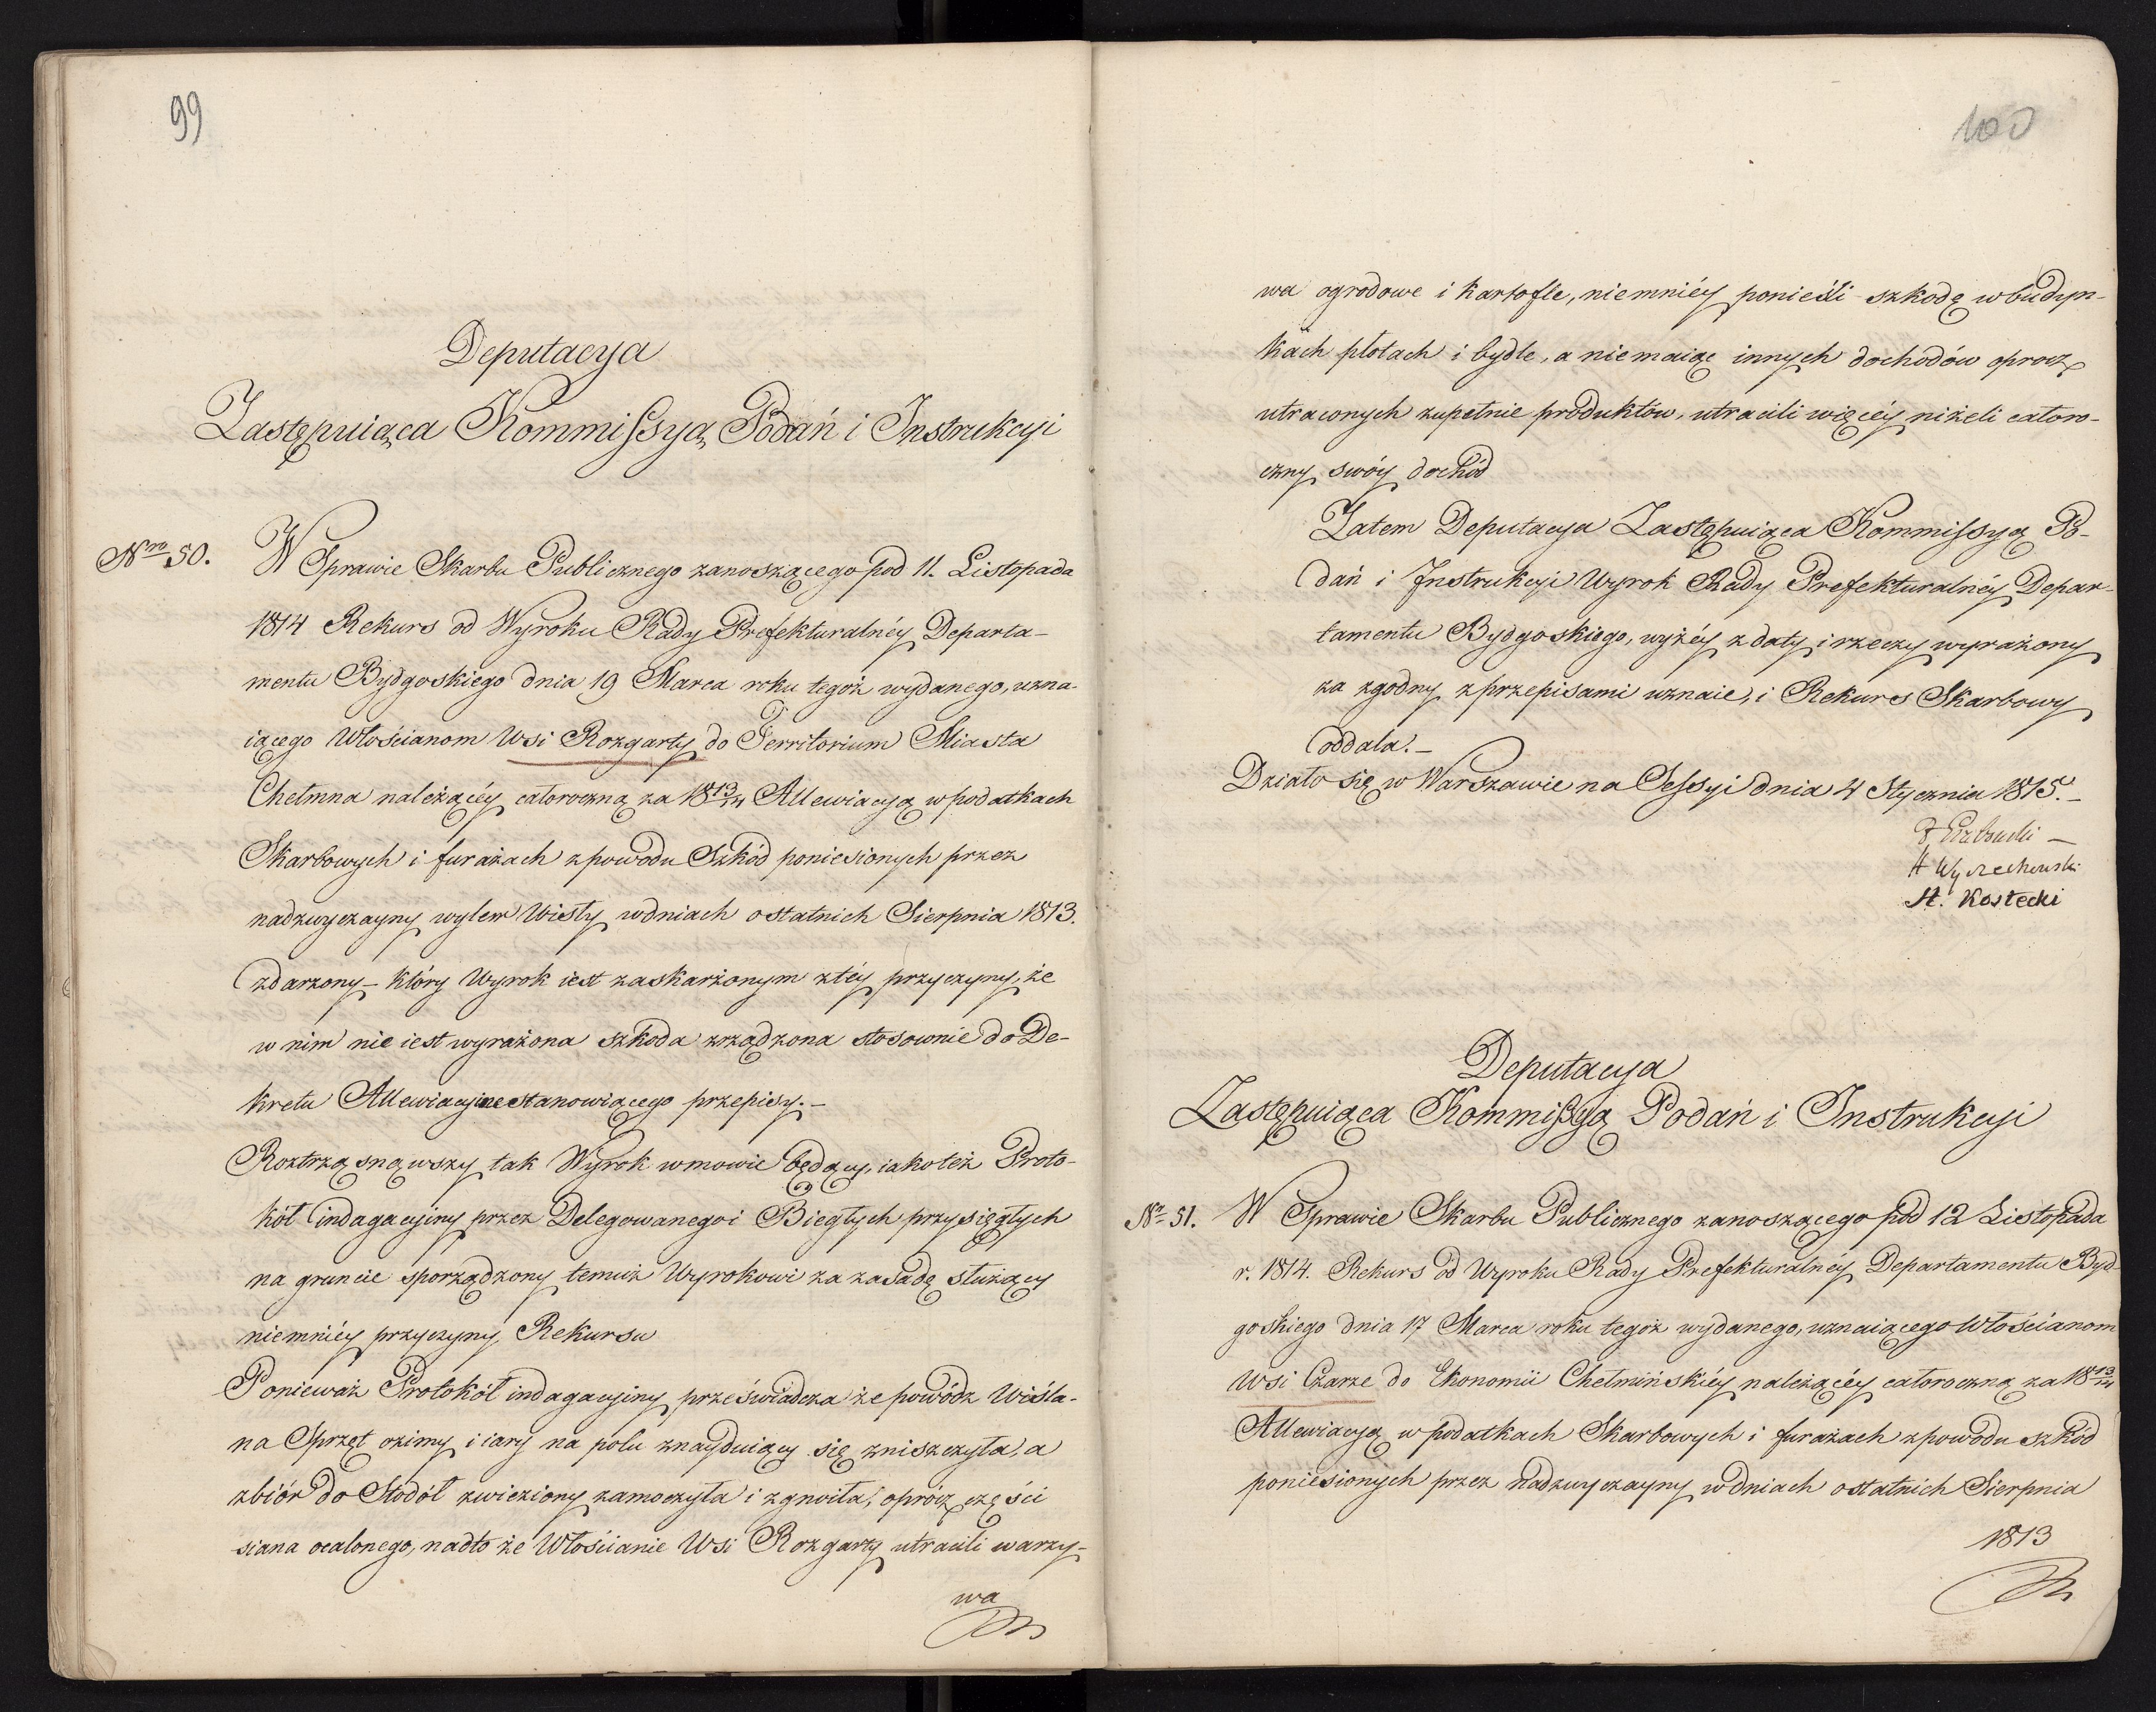 99
Deputacya
Zastępuiąca Kommissyą Podań i Instrukcyi
Nro 50. W Sprawie Skarbu Publicznego zanoszącego pod 11. Listopada
1814 Rekurs od Wyroku Rady Prefekturalnéy Departa-
mentu Bydgoskiego dnia 19 Marca roku tegoż wydanego, uzna-
iącego Włościanom Wsi Rozgarty do Territorium Miasta
Chełmna należącéy całoroczną za 1813/14 Allewiacyą w podatkach
Skarbowych i furażach z powodu Szkód poniesionych przez
nadzwyczayny wylew Wisły w dniach ostatnich Sierpnia 1813.
zdarzony – który Wyrok iest zaskarżonym z téy przyczyny, że
w nim nie iest wyrażona szkoda zrządzona stosownie do De-
kretu Allewiacyine stanowiącego przepisy. –
Roztrząsnąwszy tak Wyrok w mowie będący, iako też Proto-
kół indagacyiny przez Delegowanego i Biegłych przysięgłych
na gruncie sporządzony temuż Wyrokowi za zasadę służący
niemniéy przyczyny Rekursu
Ponieważ Protokół indagacyiny przeświadcza że powódz Wiśla-
na Sprzęt ozimy i iary na polu znayduiący się zniszczyła, a
zbiór do Stodół zwieziony zamoczyła i zgnoiła, oprócz części
siana ocalonego, nadto że Włościanie Wsi Rozgarty utracili warzy-
wa
100
wa ogrodowe i kartofle, niemniéy ponieśli szkodę w budyn-
kach płotach i bydle, a niemaiąc innych dochodów oprocz
utraconych zupełnie produktów, utracili więcéy niżeli całoro-
czny swóy dochód
Zatem Deputacya Zastępuiąca Kommissyą Po-
dań i Instrukcyi Wyrok Rady Prefekturalnéy Depar-
tamentu Bydgoskiego, wyżéy z daty i rzeczy wyrażony
za zgodny z przepisami uznaie, i Rekurs Skarbowy
oddala. –
Działo się w Warszawie na Sessyi dnia 4 Stycznia 1815. –
A Wyczechowski
A. Kostecki
Deputacya
Zastępuiąca Kommissyą Podań i Instrukcyi
Nro 51. W Sprawie Skarbu Publicznego zanoszącego pod 12 Listopada
r. 1814. Rekurs od Wyroku Rady Prefekturalnéy Departamentu Byd-
goskiego dnia 17 Marca roku tegoż wydanego, uznaiącego Włościanom
Wsi Czarze do Ekonomii Chełmińskiéy należącéy całoroczną za 1813/14
Allewiacyą w podatkach Skarbowych i furażach z powodu szkód
poniesionych przez nadzwyczayny w dniach ostatnich Sierpnia
1813